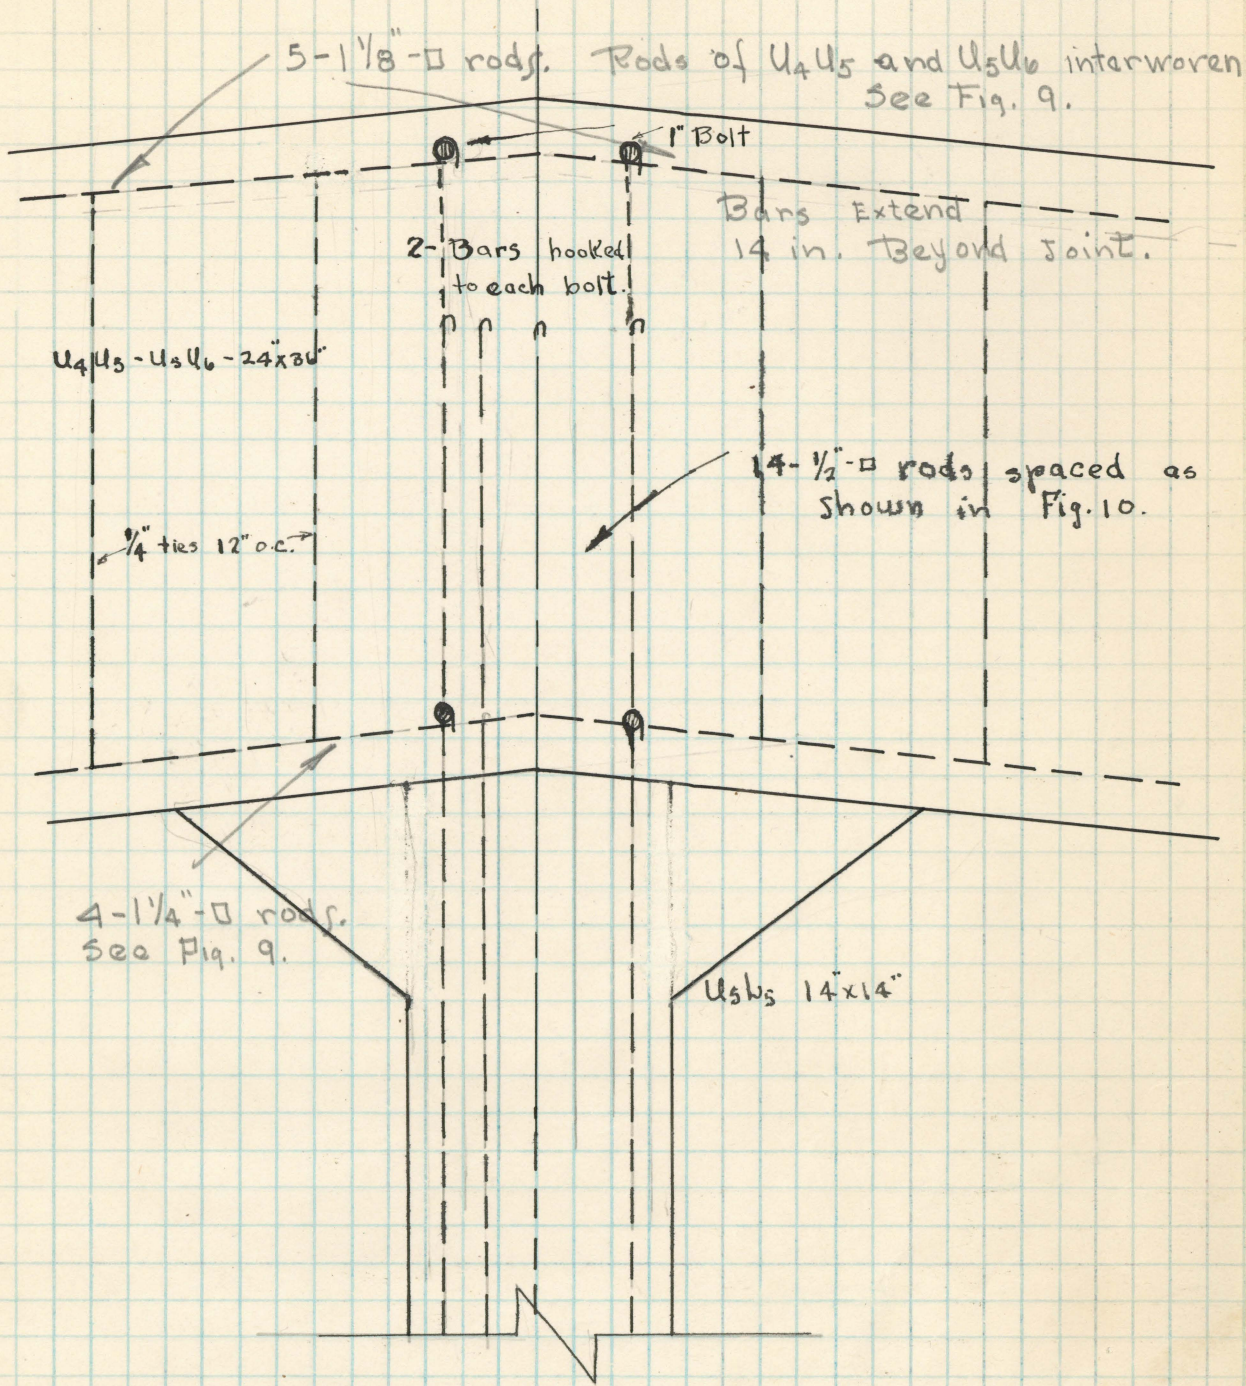 5-1 1/8"-□ rods. Rods of U4U5 and U5U6 interwoven
See Fig. 9.
1" Bolt
Bars Extend
14 in. Beyond Joint.
2-Bars hooked
to each bolt.
U4U5-U5U6-24"x36"
14-1/2"-□ rods spaced as
shown in Fig. 10.
1/4" ties 12" o.c.
4-1 1/4"-□ rods.
See Fig. 9.
U5L5 14"x14"